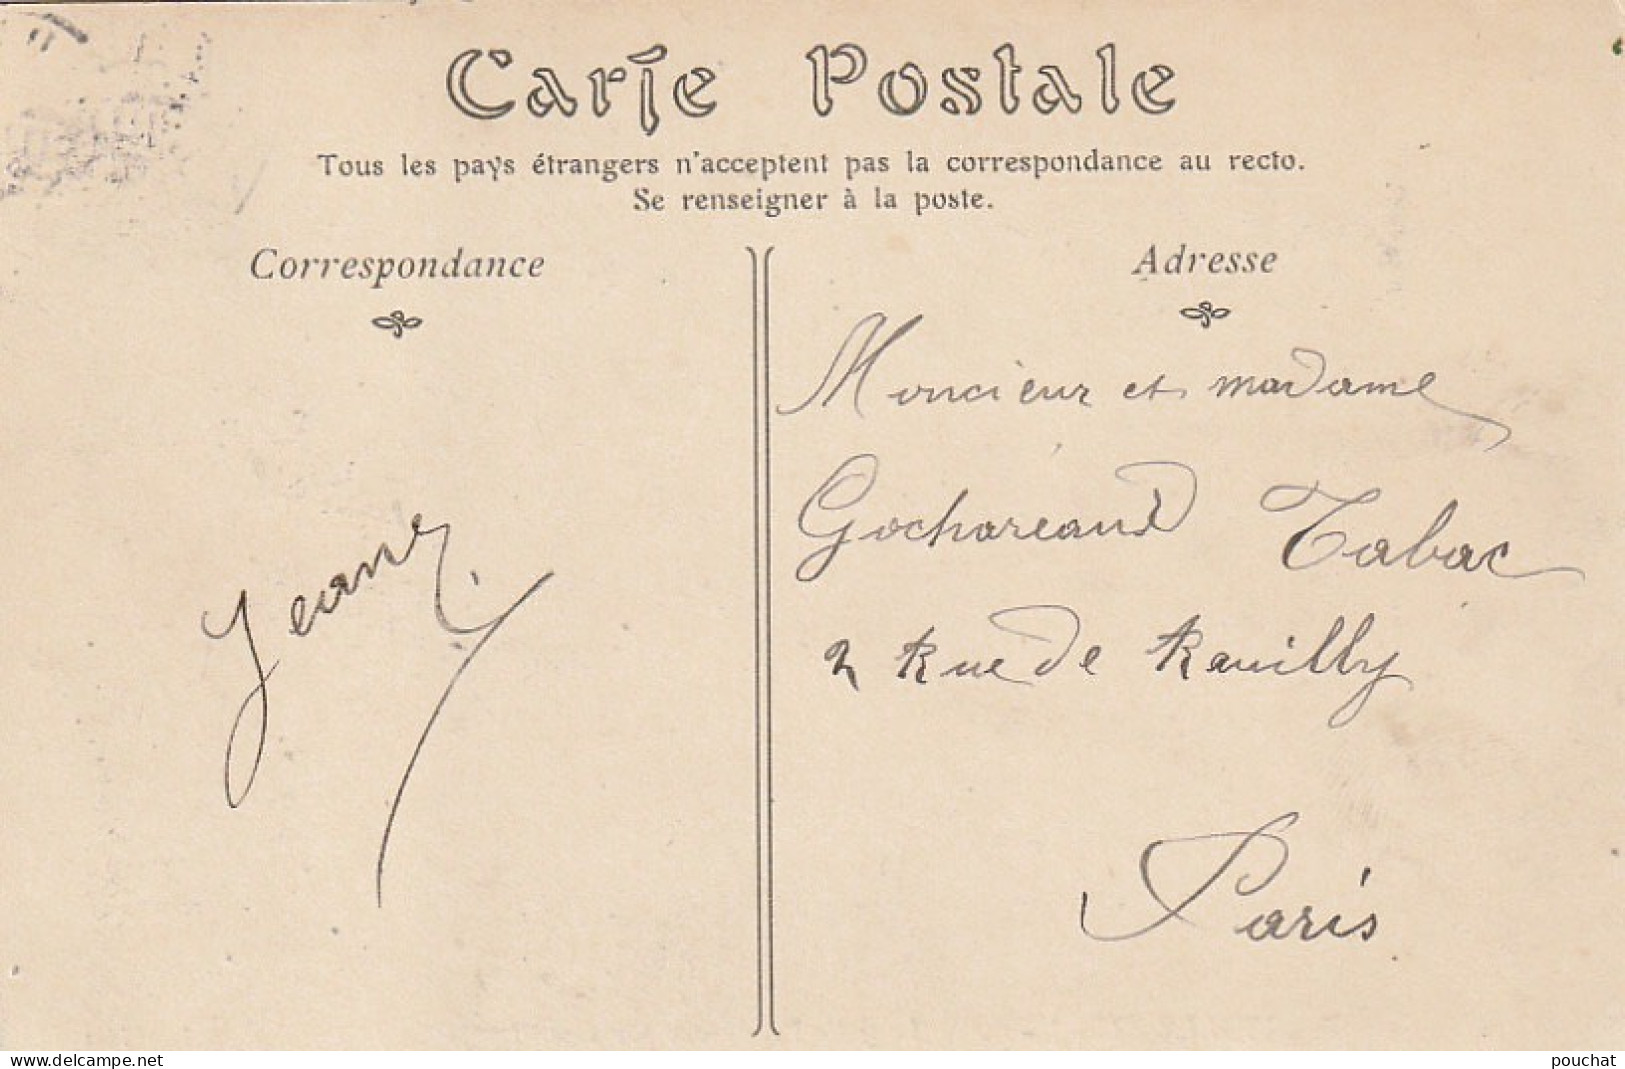 Carte Postale
Tous les pays étrangers n'acceptent pas la correspondance au recto.
Se renseigner à la poste.
Correspondance
Jeanne
Adresse
Moncieur et madame
Gochareaud Tabac
2 Rue de Reuilly
Paris
www.delcampe.net
pouchat